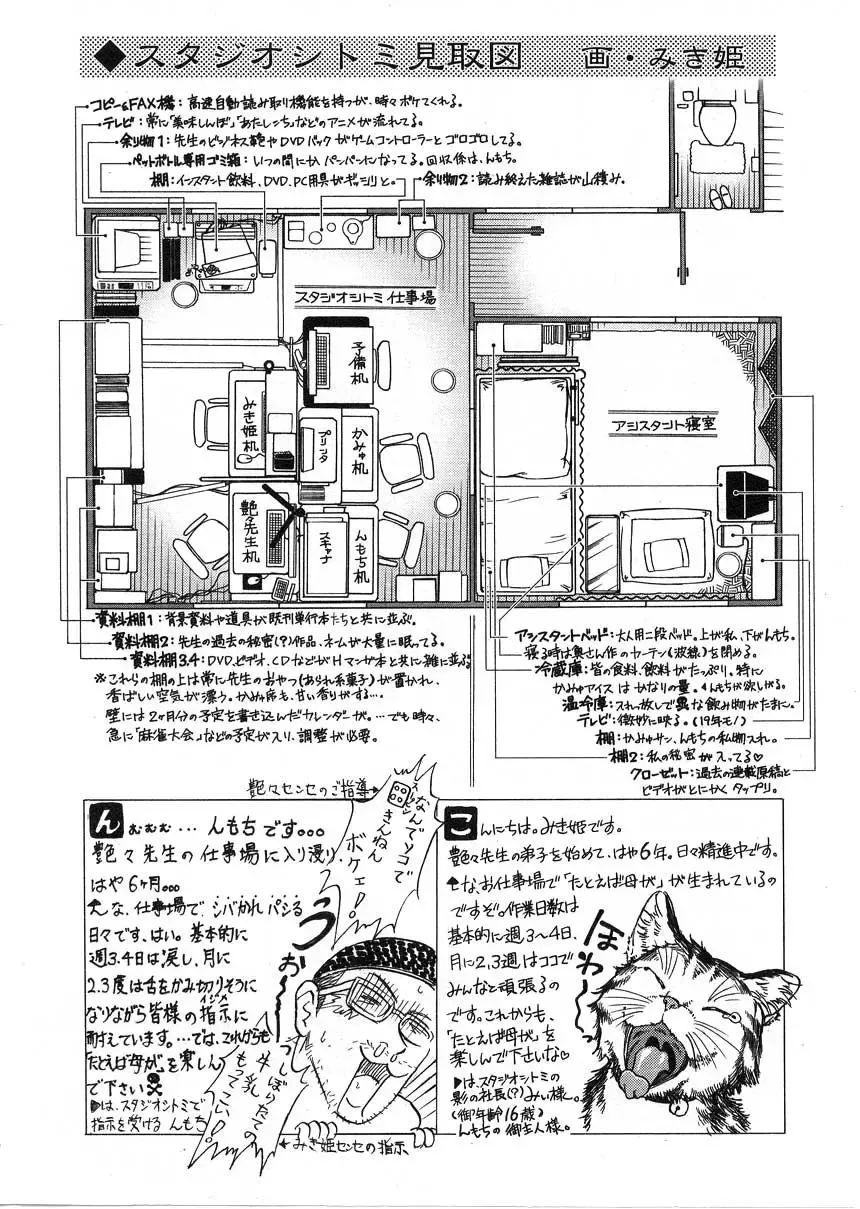 ◆スタジオシトミ見取図 画・みき姫
コピー&FAX機：高速自動読み取り機能を持つが、時々ボケてくれる。
テレビ：常に「美味しんぼ」「あたしンち」などのアニメが流れてる。
余り物1：先生のビジネス鞄やDVDパックがゲームコントローラーとゴロゴロしてる。
ペットボトル専用ゴミ箱：いつの間にかパンパンになってる。回収係は、んもち。
棚：インスタント飲料、DVD、PC用具がギッシリと。
余り物2：読み終えた雑誌が山積み。
スタジオシトミ仕事場
予備机
みき姫机
プリンタ
かみゅ机
艶々先生机
スキャナ
んもち机
アシスタント寝室
資料棚1：背景資料や道具が既刊単行本たちと共に並ぶ。
資料棚2：先生の過去の秘密(?)作品、ネームが大量に眠ってる。
資料棚3.4：DVD、ビデオ、CDなどがHマンガ本と共に雑に並ぶ。
※これらの棚の上は常に先生のおやつ(あられ系菓子)が置かれ、
香ばしい空気が漂う。かみゅ席も、甘い香りがする…。
壁には2ヶ月分の予定を書き込んだカレンダーが。…でも時々、
急に「麻雀大会」などの予定が入り、調整が必要。
アシスタントベッド：大人用二段ベッド。上が私、下がんもち。
寝る時は奥さん作のカーテン(波線)を閉める。
冷蔵庫：皆の食料、飲料がたっぷり。特に
かみゅアイスはかなりの量。んもちが欲しがる。
温冷庫：スれっ放しで異な飲み物がたまに。
テレビ：微妙に映る。(19年モノ)
棚：かみゅサン、んもちの私物入れ。
棚2：私の秘密が入ってる♡
クローゼット：過去の連載原稿と
ビデオがとにかくタップリ。
艶々センセのご指導→
なんでソコで
きんねん
ボケェ!
んむむむ…んもちです。。。
艶々先生の仕事場に入り浸り、
はや6ヶ月。。。
んな、仕事場でシバかれパシる
日々です、はい。基本的に
週3.4日は涙し、月に
2.3度は舌をかみ切りそうに
なりながら皆様の指示に
イジメ
耐えています。…では、これからも
「たとえば母が」を楽しんで下さい☠
▶は、スタジオシトミで
指示を受けるんもち
うぉー
しぼりたての
牛乳
もってこい!
←みき姫センセの指示
こんにちは。みき姫です。
艶々先生の弟子を始めて、はや6年。日々精進中です。
んな、お仕事場で「たとえば母が」が生まれているの
ですぞ。作業日数は
基本的に週3〜4日、
月に2,3週はココで
みんなと頑張るの
です。これからも、
「たとえば母が」を
楽しんで下さいな♡
▶は、スタジオシトミの
影の社長(?)みぃ様。
(御年齢16歳)
んもちの御主人様。
ほわ〜っ